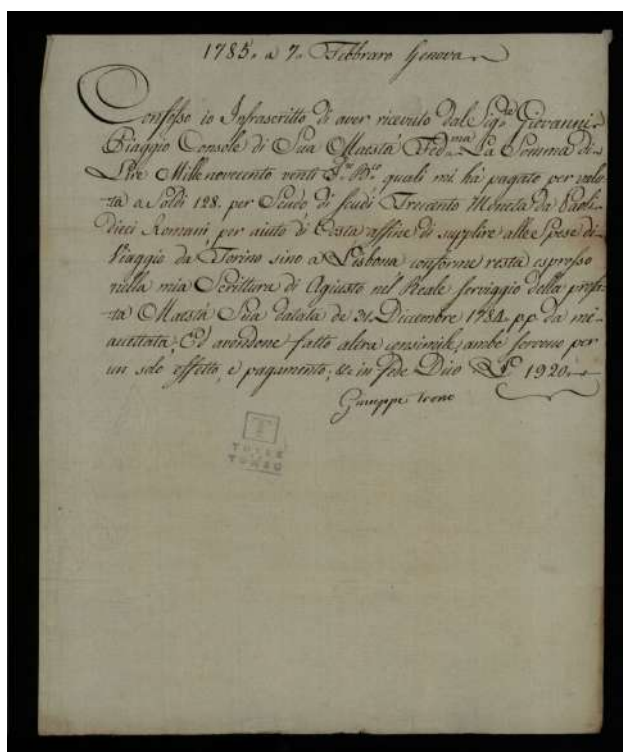 1785. a 7. Febbraro Genova
Confesso io Infrascritto di aver ricevuto dal Sig.re Giovanni
Piaggio Console di Sua Maestà Fed.ma La Somma di
Lire Mille novecento venti quali mi hà pagato per valu-
ta a Soldi 128. per Scudo di scudi Trecento Moneta da Paoli
Dieci Romani per aiuto di Costa affine di supplire alle Spese di
Viaggio da Torino sino a Lisbona conforme resta espresso
nella mia Scrittura di Agiusto nel Reale servigio della prefa-
ta Maestà Sua datata de 31. Dicembre 1784. pp. da me
accettata, Ed avendone fatto altra consimile, ambe servono per
un solo effetto, e pagamento; in fede Dico 1920
Giuseppe Trono
T
TORRE
DO
TOMBO